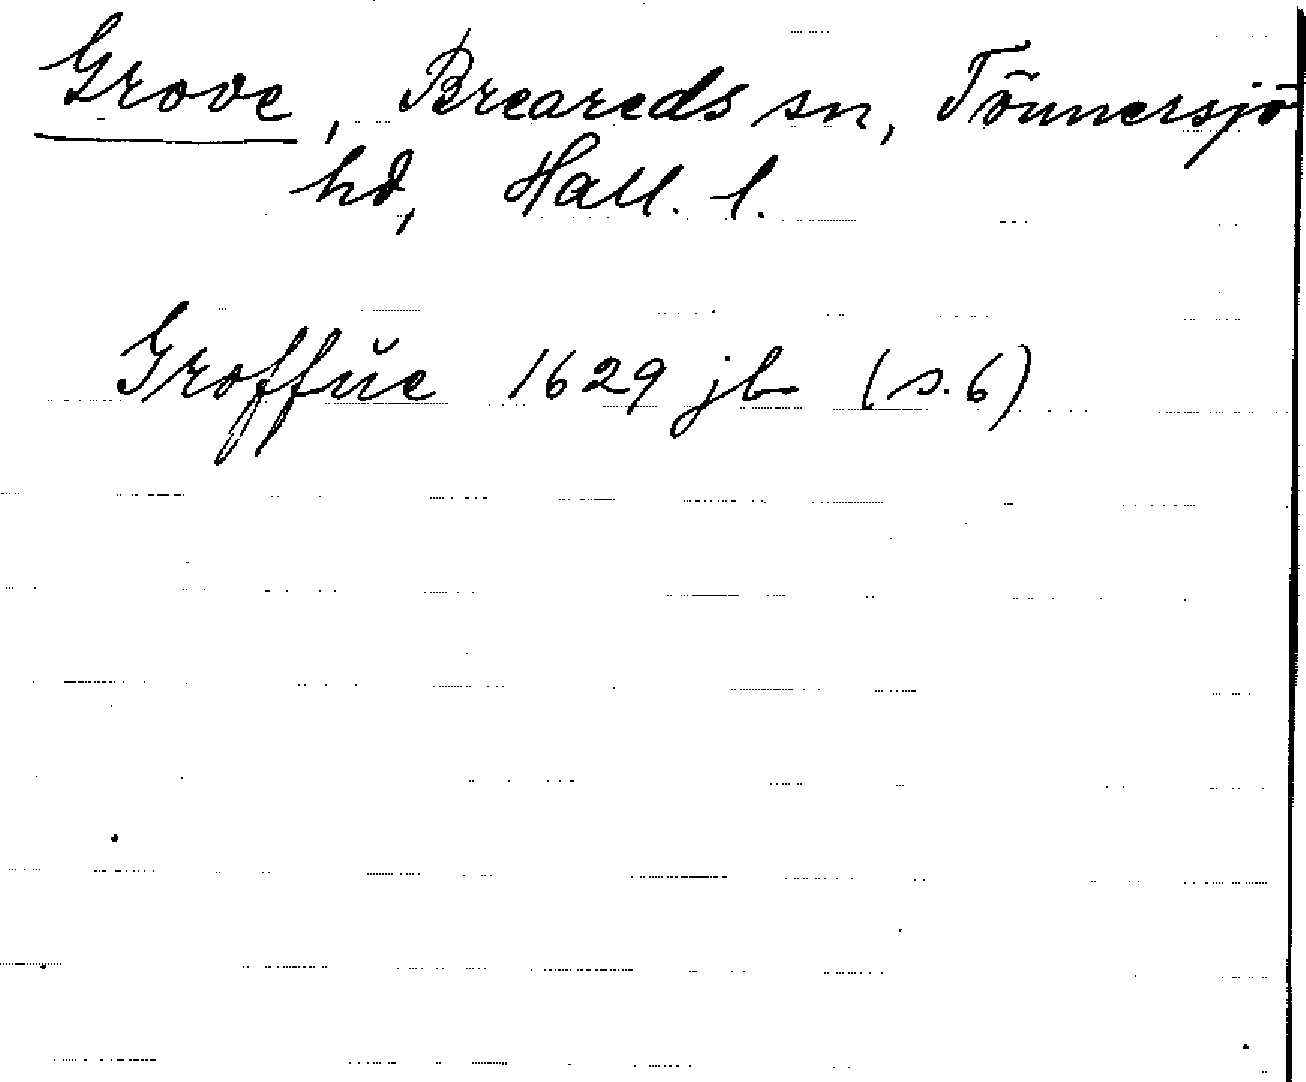 Grove, Breareds sn, Tönnersjö
hd, Hall. l.
Groffŭe 1629 jb (s. 6)